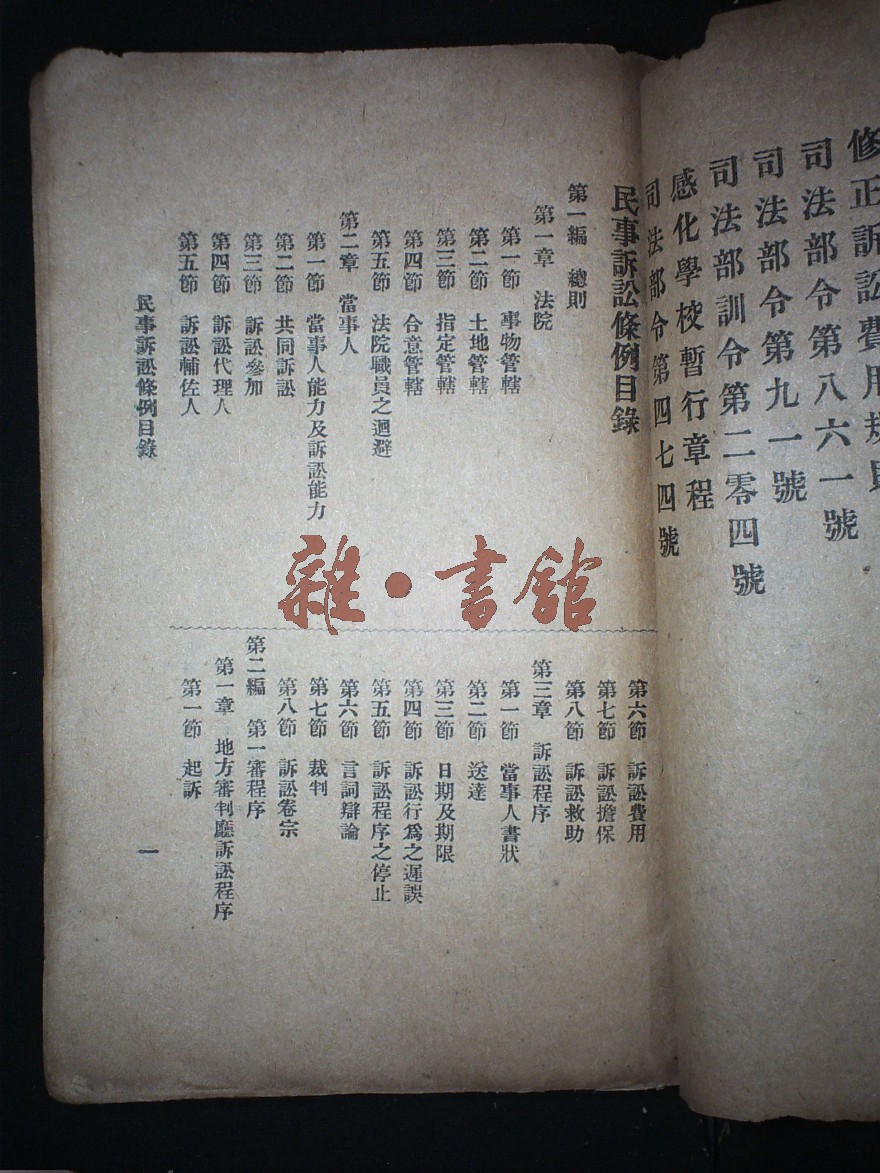 修正訴訟費用規則
司法部令第八六一號
司法部令第九一號
司法部訓令第二零四號
感化學校暫行章程
司法部令第四七四號
民事訴訟條例目錄
第一編 總則
第一章 法院
第一節 事物管轄
第二節 土地管轄
第三節 指定管轄
第四節 合意管轄
第五節 法院職員之迴避
第二章 當事人
第一節 當事人能力及訴訟能力
第二節 共同訴訟
第三節 訴訟參加
第四節 訴訟代理人
第五節 訴訟輔佐人
第六節 訴訟費用
第七節 訴訟擔保
第八節 訴訟救助
第三章 訴訟程序
第一節 當事人書狀
第二節 送達
第三節 日期及期限
第四節 訴訟行爲之遲誤
第五節 訴訟程序之停止
第六節 言詞辯論
第七節 裁判
第八節 訴訟卷宗
第二編 第一審程序
第一章 地方審判廳訴訟程序
第一節 起訴
民事訴訟條例目錄
一
雜·書館